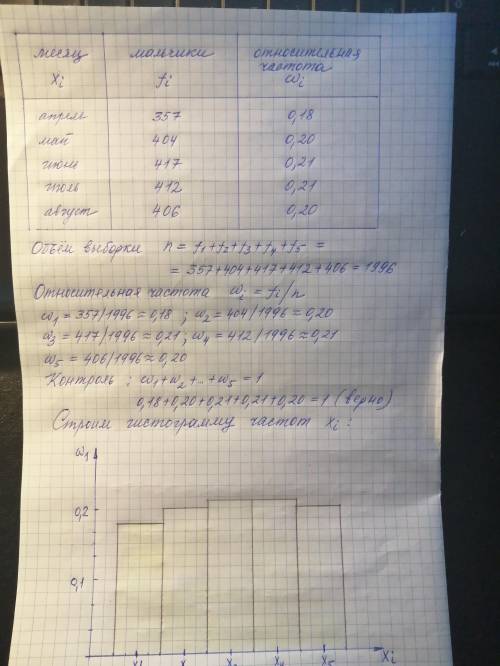 месяц мальчики относительная
частота
xi fi ωi
апрель 357 0,18
май 404 0,20
июнь 417 0,21
июль 412 0,21
август 406 0,20
Объём выборки n = f1+f2+f3+f4+f5 =
= 357+404+417+412+406 = 1996
Относительная частота ωi = fi/n
ω1 = 357/1996 ≈ 0,18 ; ω2 = 404/1996 ≈ 0,20
ω3 = 417/1996 ≈ 0,21 ; ω4 = 412/1996 ≈ 0,21
ω5 = 406/1996 ≈ 0,20
Контроль : ω1+ω2+...+ω5 = 1
0,18+0,20+0,21+0,21+0,20 = 1 (верно)
Строим гистограмму частот xi :
ω1
0,2
0,1
x4 x5 xi